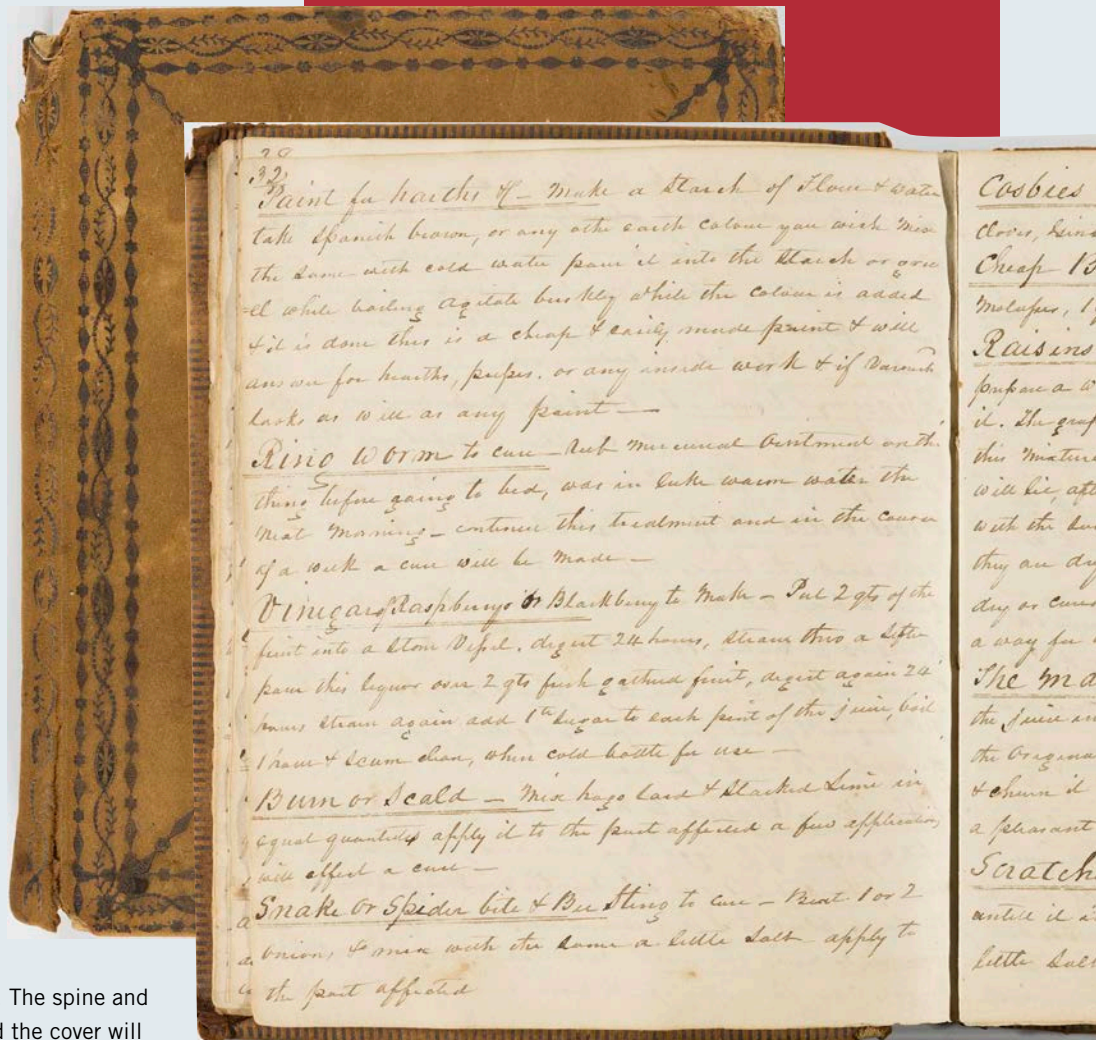 32
Paint for harths &c - Make a Starch of Flour & wate
take Spanish brown, or any othe earth colour you wish Mix
the same with cold wate pour it into the Starch or gru
=el while boiling agitate briskly while the colour is added
& it is done this is a cheap & easily made paint & will
answer for hearths, or any inside work & if varnish
looks as well as any paint —
Ring Worm to cure - Rub Mercurial Ointment on the
thing before going to bed, was in luke warm water the
next Morning - continue this treatment and in the course
of a week a cure will be Made —
Vinigar of Raspberrys or Blackberry to Make - Put 2 qts of the
fruit into a Stone Vessel, digest 24 hours, strain thro a
pour this liquor over 2 qts fresh gathered fruit, digest again 24
hours strain again add 1 lb Sugar to each pint of the juice, boil
1 hour & scum clean, when cold bottle for use —
Burn or Scald — Mix hogs lard & Slacked Lime in
equal quantities apply it to the part affected a few applications
will effect a cure —
Snake or Spider bite & Bee Sting to cure - Beat 1 or 2
Onions, & mix with the same a little Salt - apply to
the part affected
Cosbies
Cloves,
Cheap B
Molasses, 1
Raisins
prepare a
it. The
this Mixture
will lie,
with the
they are
dry or
a way for
The Ma
the juice
the
& churn it
a pleasant
Scratch
untill it
little Salt
The spine and
the cover will